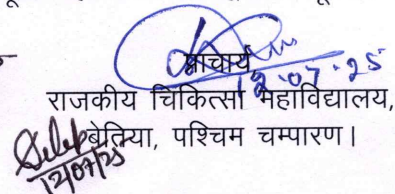 प्राचार्य
12.07.25
राजकीय चिकित्सा महाविद्यालय,
बेतिया, पश्चिम चम्पारण।
12/07/25